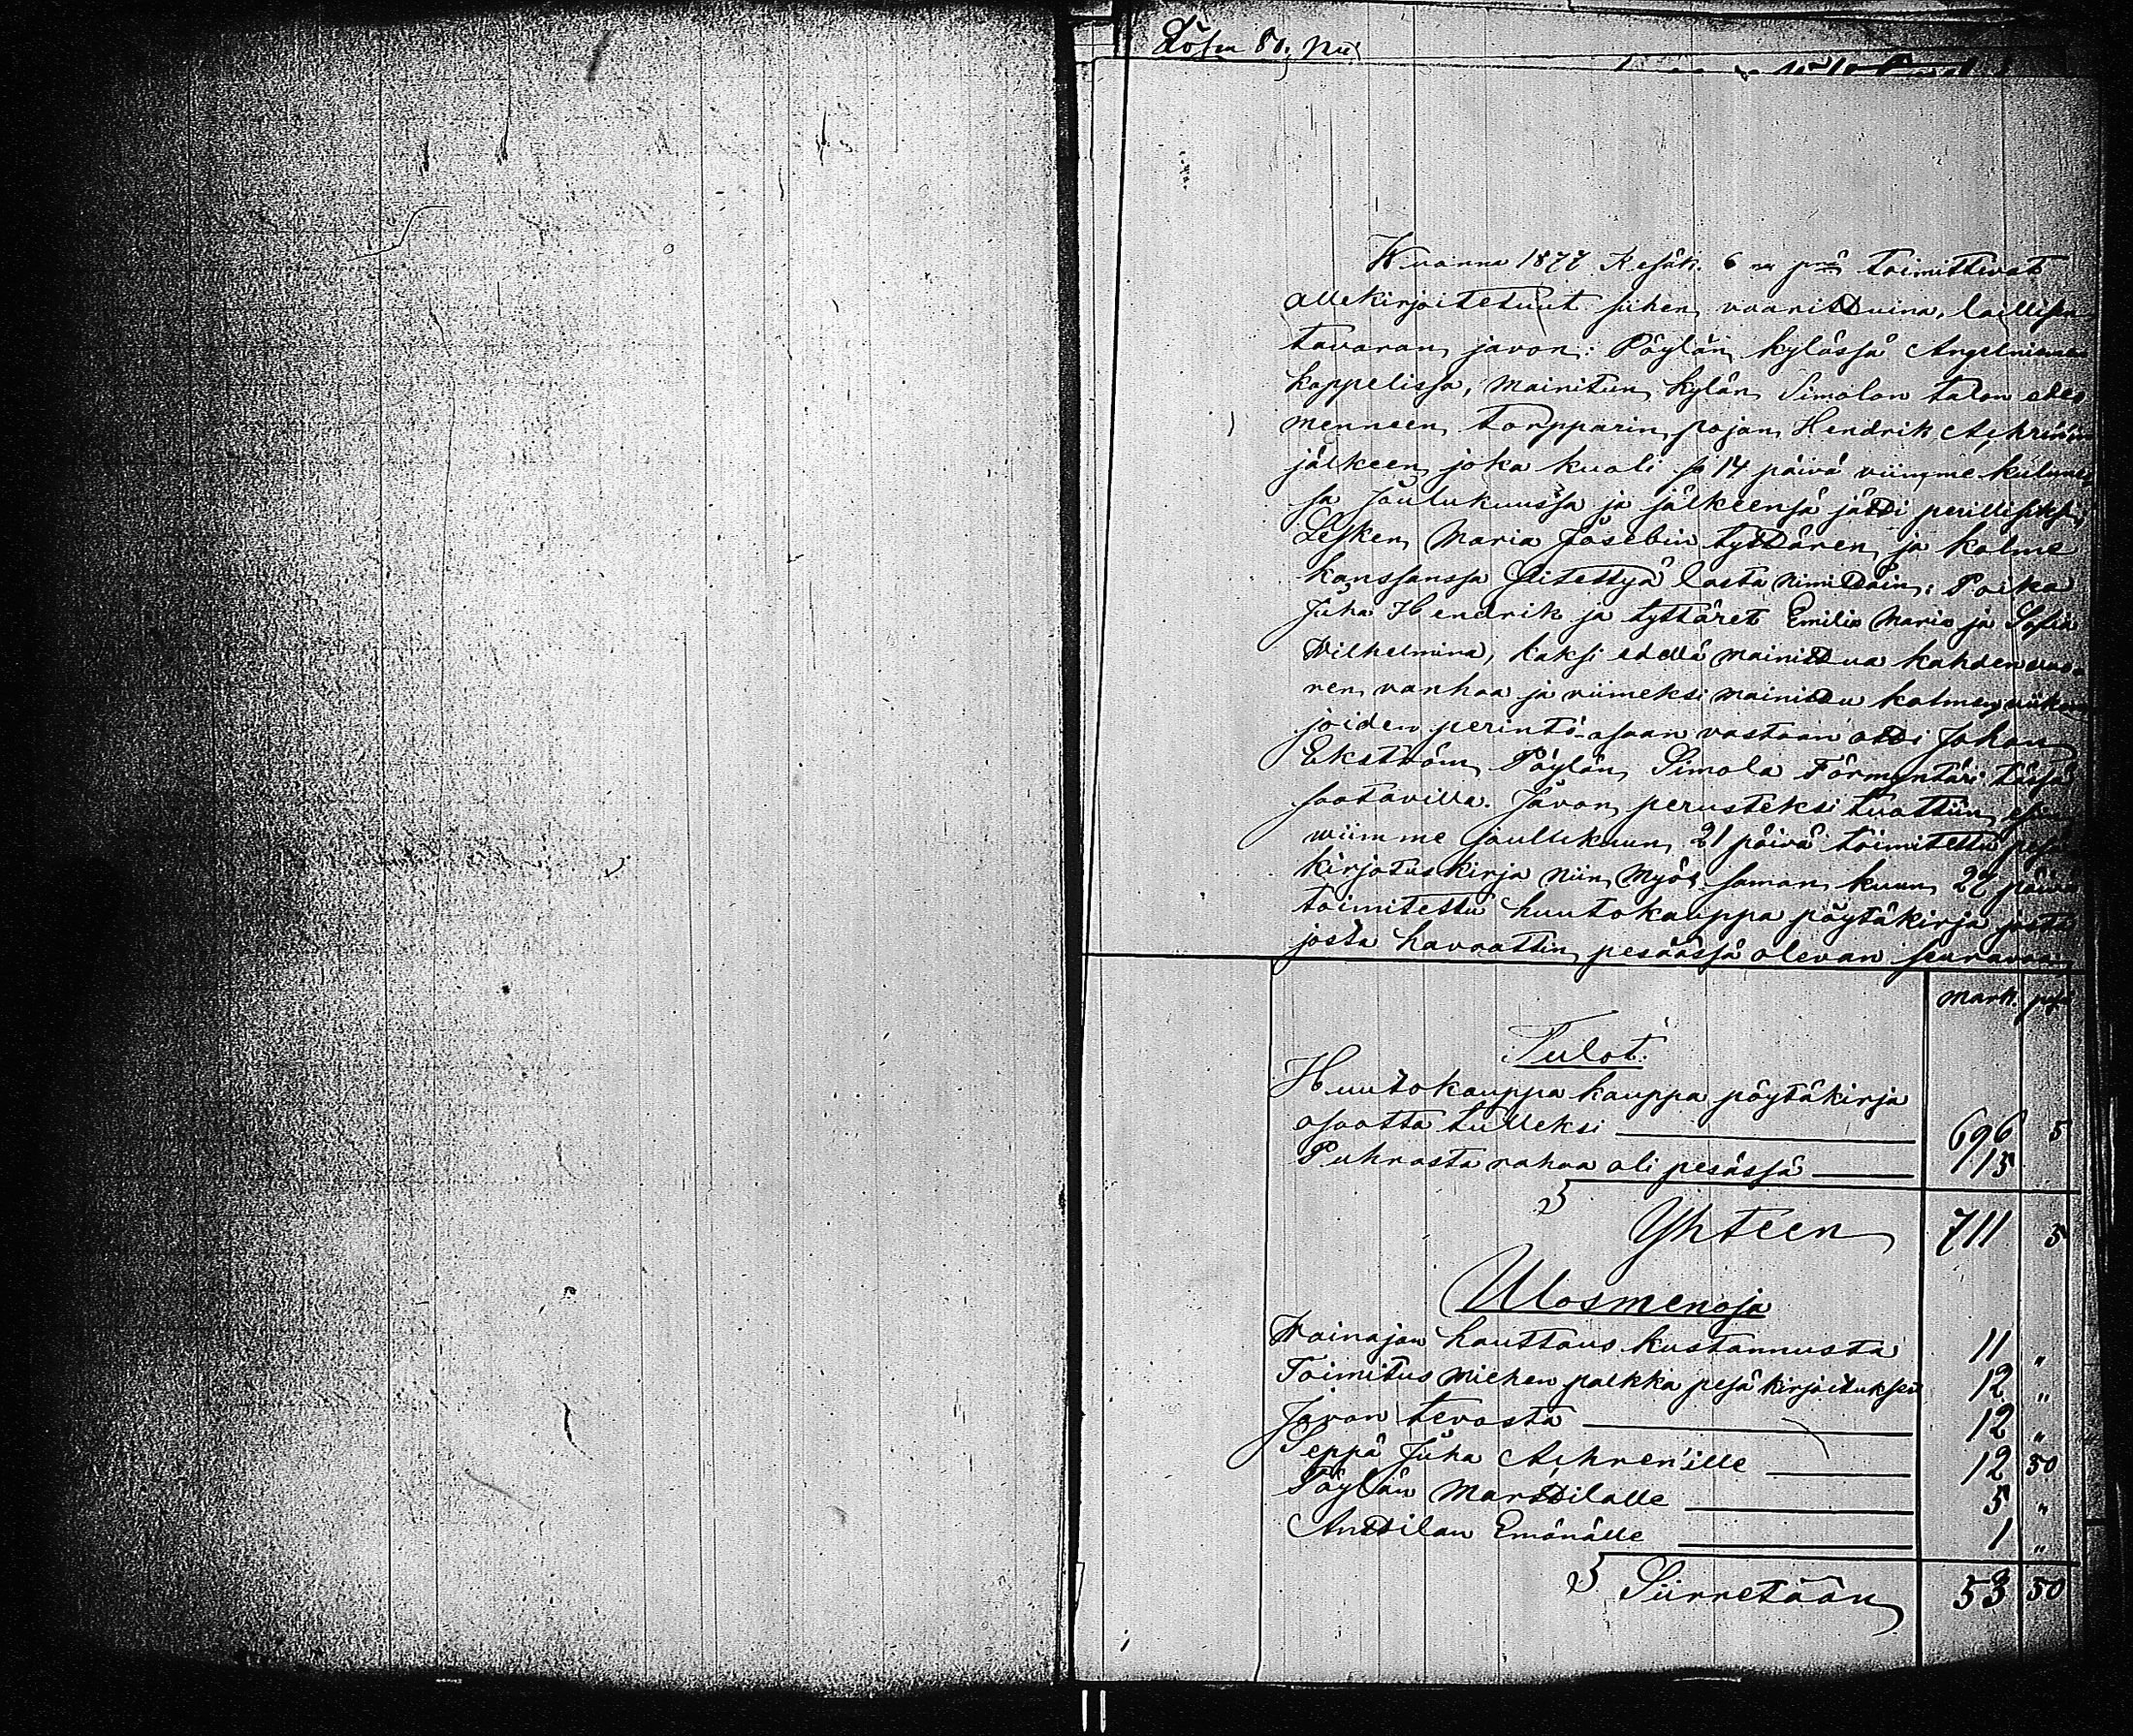 Lösen 80, pii
Wuonna 1877 Kesäk. 6 na pnä toimittivat
allekirjoitetuut siihen vaarittuina, laillisen
tavaran javon: Pöylän kylässä Angelniemen
kappelissa, mainitun kylän Simolan talon edes
menneen torpparin pojan Hendrik Achrénin
jälkeen joka kuoli se 14 päivä viimme kulunee
sa Joulukuussa ja jälkeensä jätti perillisiksi
Lesken Maria Josebin tyttären ja kolme
kanssansa siitettyä lasta nimittäin: Poika
Juha Hendrik ja tyttäret Emilia Maria ja Sofia
Wilhelmina, kaksi edellä mainittua kahden vuo-
nen vanhaa ja viimeksi mainittu kolmen viikon
joiden perintö-osaan vastaan otti Johan
Ekström Pöylän Simola Förmyntäri tässä
saatavilla. Javon perusteksi tuottiin esiin
wiimme joullukuun 21 päivä toimitettu pesä
kirjotuskirja niin myös saman kuun 27 päivä
toimitettu huutokauppa pöytäkirja josta
josta havaattin pesäässä olevan seuraavan
mark. pnä
Tulot:
Huutokauppa kauppa pöytäkirja
osootta tulleksi 696 5
Puhrasta rahaa oli pesässä 15
Yhteen 711 5
Ulosmenoja
Wainajan hauttaus kustannusta 11 "
Toimitus miehen palkka pesä kirjoituksesta 12 "
Javon tevosta 12 "
Seppä Juha Achren'ille 12 50
Pöylän Marttilalle 5 "
Anttilan Emänälle 1 "
Siirretään 53 50